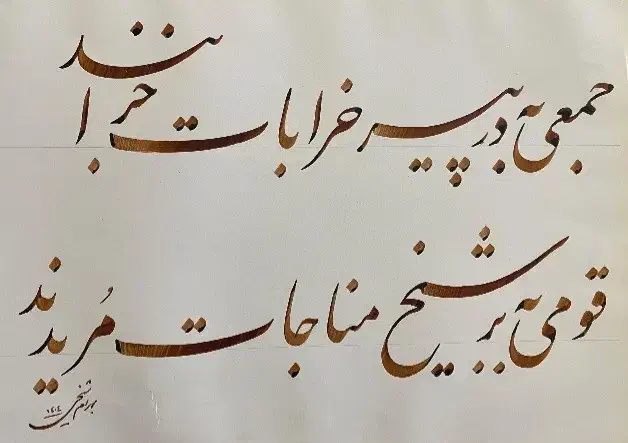 جمعی به در پیر خرابات خرابند
قومی به بر شیخ مناجات مُریدند